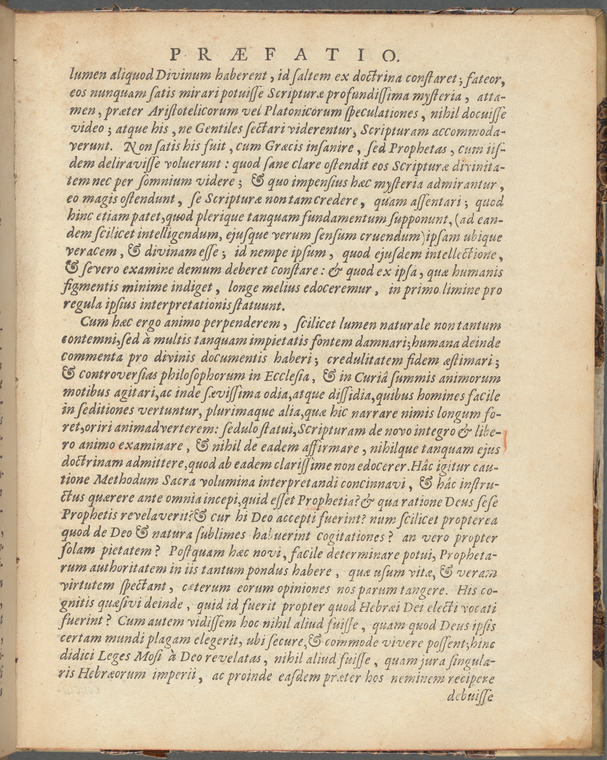 PRÆFATIO.
lumen aliquod Divinum haberent, id ſaltem ex doctrina conſtaret; fateor,
eos nunquam ſatis mirari potuiſſe Scripturæ profundiſſima myſteria, atta-
men, præter Ariſtotelicorum vel Platonicorum ſpeculationes, nihil docuiſſe
video; atque his, ne Gentiles ſectari viderentur, Scripturam accommoda-
verunt. Non ſatis his fuit, cum Græcis inſanire, ſed Prophetas, cum iiſ-
dem deliraviſſe voluerunt: quod ſane clare oſtendit eos Scripturæ divinita-
tem nec per ſomnium videre; & quo impenſius hæc myſteria admirantur,
eo magis oſtendunt, ſe Scripturæ non tam credere, quam aſſentari; quod
hinc etiam patet, quod plerique tanquam fundamentum ſupponunt, (ad ean-
dem ſcilicet intelligendum, ejuſque verum ſenſum eruendum) ipſam ubique
veracem, & divinam eſſe; id nempe ipſum, quod ejuſdem intellectione,
& ſevero examine demum deberet conſtare: & quod ex ipſa, quæ humanis
figmentis minime indiget, longe melius edoceremur, in primo limine pro
regula ipſius interpretationis ſtatuunt.
Cum hæc ergo animo perpenderem, ſcilicet lumen naturale non tantum
contemni, ſed à multis tanquam impietatis fontem damnari; humana deinde
commenta pro divinis documentis haberi; credulitatem fidem æſtimari;
& controverſias philoſophorum in Eccleſia, & in Curiâ ſummis animorum
motibus agitari, ac inde ſæviſſima odia, atque diſſidia, quibus homines facile
in ſeditiones vertuntur, plurimaque alia, quæ hic narrare nimis longum fo-
ret, oriri animadverterem: ſedulo ſtatui, Scripturam de novo integro & libe-
ro animo examinare, & nihil de eadem affirmare, nihilque tanquam ejus
doctrinam admittere, quod ab eadem clariſſime non edocerer. Hâc igitur cau-
tione Methodum Sacra volumina interpretandi concinnavi, & hâc inſtru-
ctus quærere ante omnia incepi, quid eſſet Prophetia? & qua ratione Deus ſeſe
Prophetis revelaverit? & cur hi Deo accepti fuerint? num ſcilicet propterea
quod de Deo & natura ſublimes habuerint cogitationes? an vero propter
ſolam pietatem? Poſtquam hæc novi, facile determinare potui, Propheta-
rum authoritatem in iis tantum pondus habere, quæ uſum vitæ, & veram
virtutem ſpectant, cæterum eorum opiniones nos parum tangere. His co-
gnitis quæſivi deinde, quid id fuerit propter quod Hebræi Dei electi vocati
fuerint? Cum autem vidiſſem hoc nihil aliud fuiſſe, quam quod Deus ipſis
certam mundi plagam elegerit, ubi ſecure, & commode vivere poſſent; hinc
didici Leges Moſi à Deo revelatas, nihil aliud fuiſſe, quam jura ſingula-
ris Hebræorum imperii, ac proinde eaſdem præter hos neminem recipere
debuiſſe